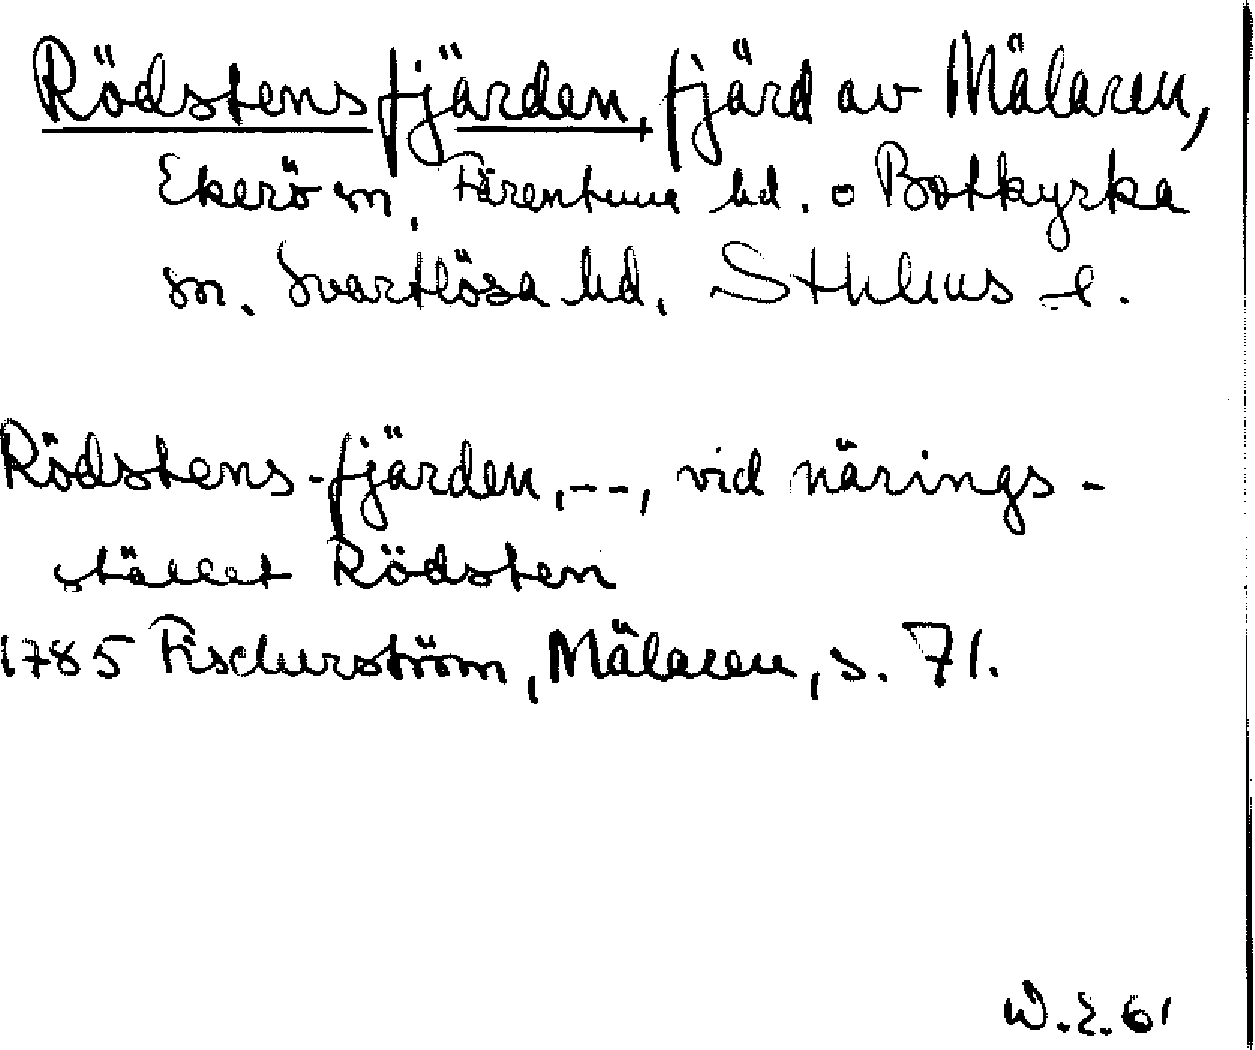 Rödstensfjärden, fjärd av Mälaren,
Ekerö sn, Färentuna hd. o Botkyrka
sn, Svartlösa hd, Sthlms l.
Rödstens-fjärden,--, vid närings-
stället Rödsten
1785 Fischerström, Mälaren, s. 71.
W.E. 61